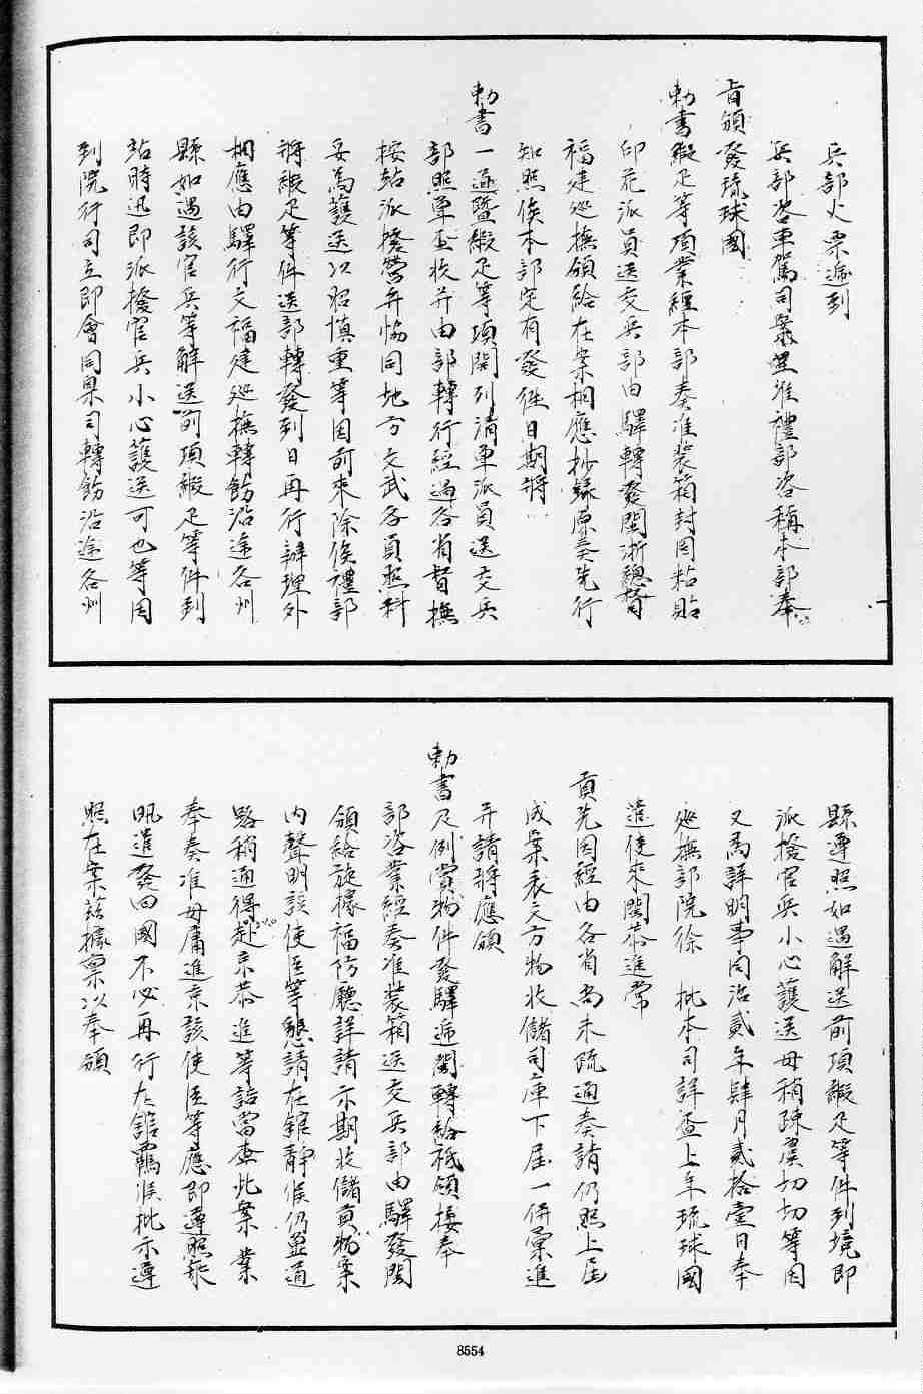 兵部火票遞到
兵部咨車駕司案呈准禮部咨稱本部奉
旨頒發琉球國
勅書緞疋等項業經本部奏准裝箱封固粘貼
印花派員送交兵部由驛轉發閩浙總督
福建巡撫頒給在案相應抄錄原奏先行
知照俟本部定有發件日期將
勅書一道暨緞疋等項開列清單派員送交兵
部照單查收并由部轉行經過各省督撫
按站派撥營弁恊同地方文武各員照料
妥為護送以昭慎重等因前來除俟禮部
將緞疋等件送部轉發到日再行辦理外
相應由驛行文福建巡撫轉飭沿途各州
縣如遇該官兵等解送前項緞疋等件到
站時迅即派撥官兵小心護送可也等因
到院行司立即會同臬司轉飭沿途各州
縣遵照如遇解送前項緞疋等件到境即
派撥官兵小心護送毋稍疎虞切切等因
又為詳明事同治貳年肆月貳拾壹日奉
巡撫部院徐 批本司詳查上年琉球國
遣使來閩恭進常
貢先因經由各省尚未疏通奏請仍照上屆
成案表文方物收儲司庫下屆一併彙進
并請將應頒
勅書及例賞物件發驛遞閩轉給祗領接奉
部咨業經奏准裝箱送交兵部由驛發閩
頒給旋據福防廳詳請示期收儲貢物案
內聲明該使臣等懇請在館靜候仍並通
路稍通得赴京恭進等詣當查此案業
奉奏准毋庸進京該使臣等應即遵照乘
帆遣發回國不必再行在館羈候批示遵
照在案茲據稟以奉頒
8554